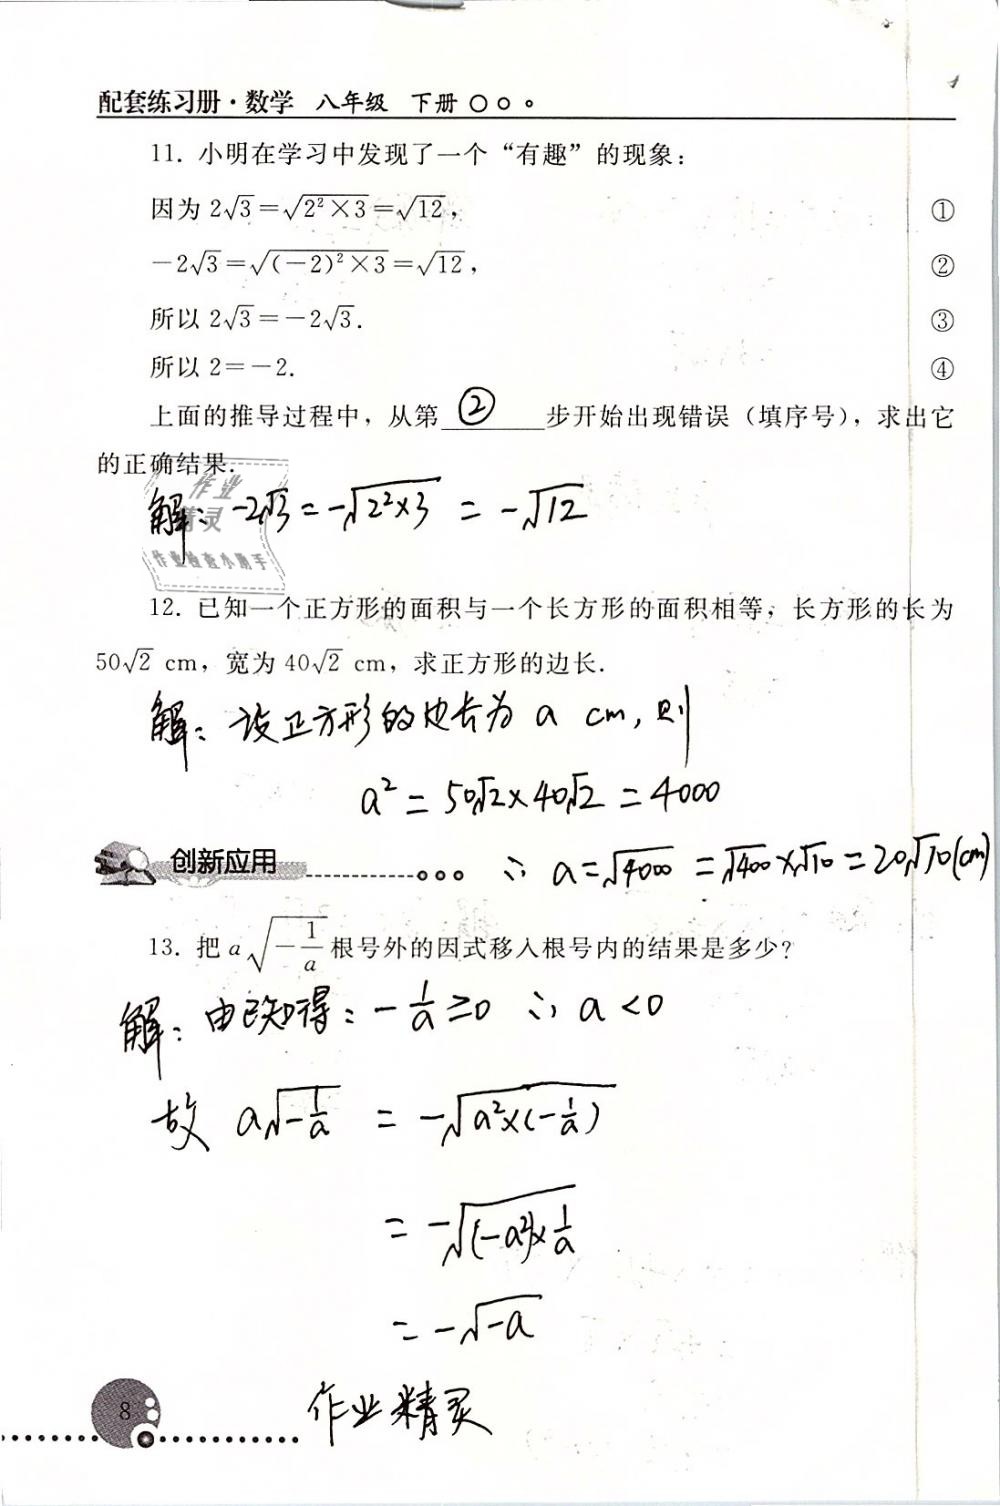 配套练习册·数学 八年级 下册
11. 小明在学习中发现了一个“有趣”的现象：
因为 2√3=√(2²×3)=√12， ①
-2√3=√((-2)²×3)=√12， ②
所以 2√3=-2√3. ③
所以 2=-2. ④
上面的推导过程中，从第 ② 步开始出现错误（填序号），求出它
的正确结果.
作业
精灵
作业检查小助手
解：-2√3=-√(2²×3) = -√12
12. 已知一个正方形的面积与一个长方形的面积相等，长方形的长为
50√2 cm，宽为 40√2 cm，求正方形的边长.
解：设正方形的边长为 a cm，则
a²=50√2×40√2=4000
创新应用
∴ a=√4000=√400×√10=20√10(cm)
13. 把 a√(-1/a) 根号外的因式移入根号内的结果是多少？
解：由已知得：-1/a≥0 ∴ a<0
故 a√(-1/a) = -√(a²×(-1/a))
=-√((-a²)×1/a)
=-√(-a)
作业精灵
8